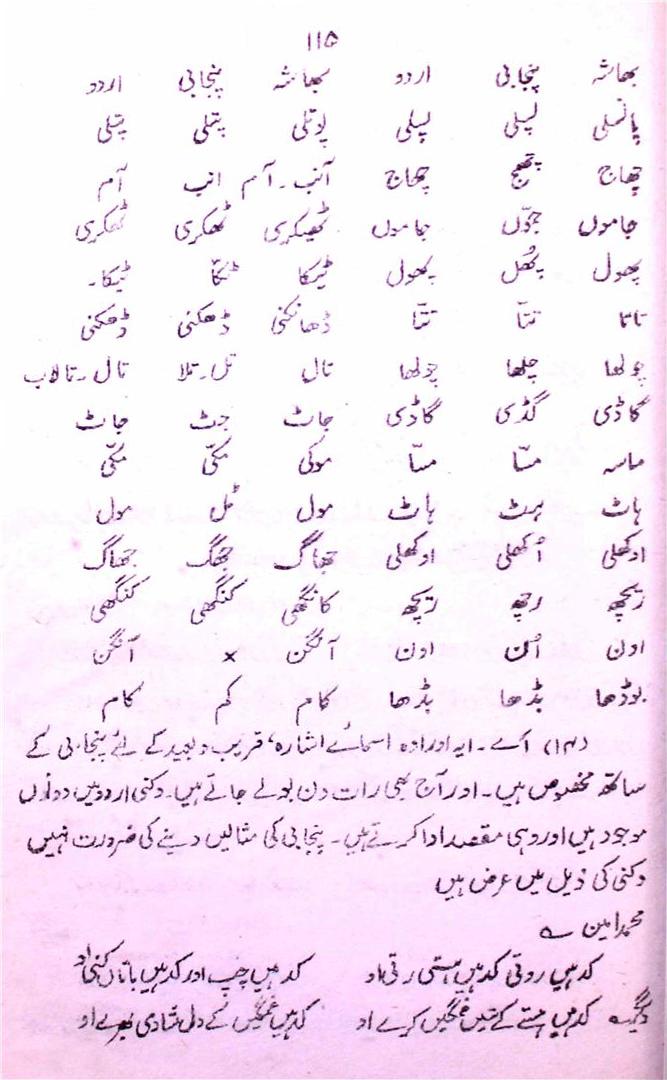 ۱۱۵
بھاشہ پنجابی اردو بھاشہ پنجابی اردو
پانسلی پسلی پسلی پوتلی پتلی پتلی
چھاج چھج چھاج آنب۔آم انب آم
جاموں جموّں جاموں ٹھیکری ٹھکری ٹھکری
پھول پھُل پھول ٹیکا ٹکّا ٹیکا۔
تاتا تتّا تتّا ڈھانکنی ڈھکنی ڈھکنی
چولھا چلھا چولھا تال تل۔تلا تال۔تالاب
گاڈی گڈی گاڈی جاٹ جٹ جاٹ
ماسہ مسّا مسّا موکی مکّی مکّی
ہاٹ ہٹ ہاٹ مول مُل مول
اوکھلی اُکھلی اوکھلی جھاگ جھگ جھاگ
ریچھ رچھ ریچھ کانگھی کنگھی کنگھی
اون اُن اون آنگن × آنگن
بوڈھا بڈھا بڈھا کام کم کام
(۱۴) اے۔ ایہ اور اوہ اسمائے اشارہ، قریب و بعید کے لئے پنجابی کے
ساتھ مخصوص ہیں۔ اور آج بھی رات دن بولے جاتے ہیں۔ دکنی اردو میں دونوں
موجود ہیں اور وہی مقصد ادا کرتے ہیں۔ پنجابی کی مثالیں دینے کی ضرورت نہیں
دکنی کی ذیل میں عرض ہیں
محمد امین ؎
کدہیں روتی کدہیں ہستی رتی او کدہیں چپ اور کدہیں باتاں کتی او
دگر ؎ کدہیں ہستے کے تئیں غمگیں کرے او کدہیں غمگیں کے دل شادی بھرے او